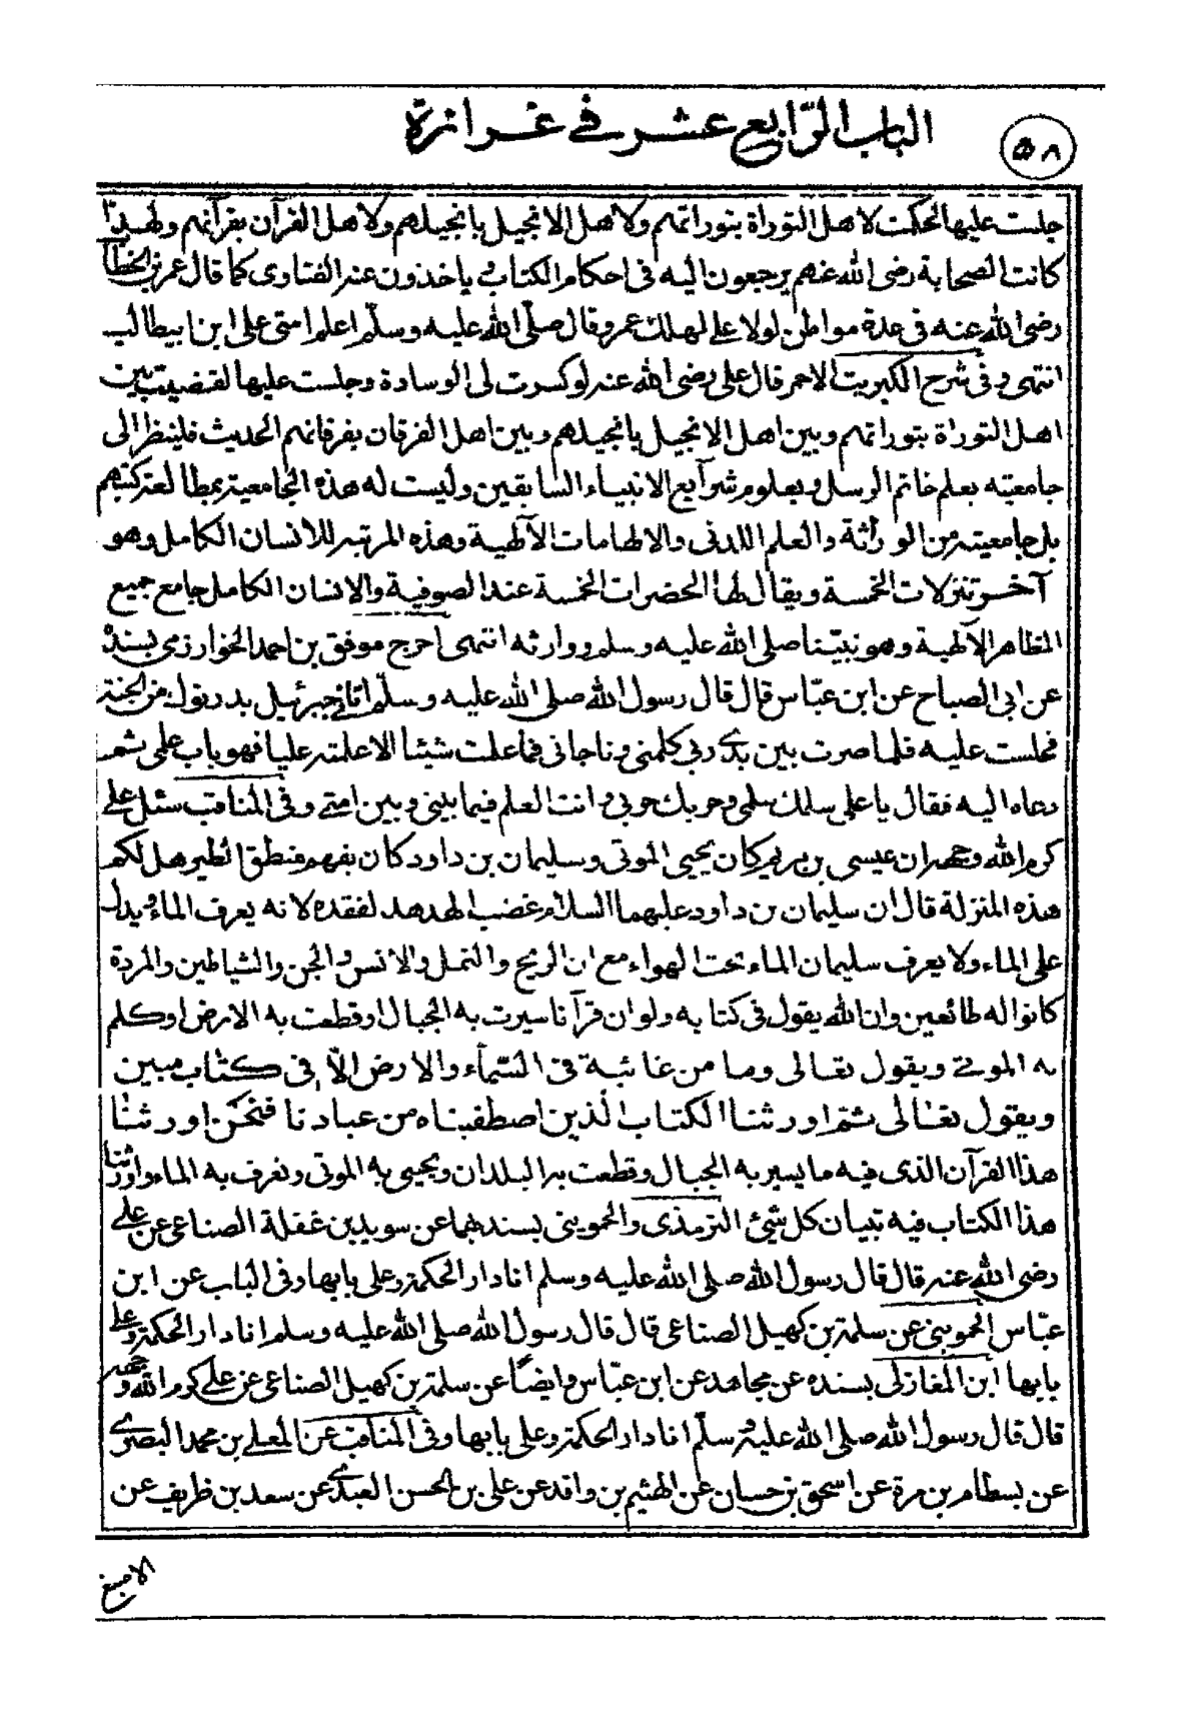 الباب الرّابع عشر في غزارة
٥٨
جلست عليها لحكمت لاهل التوراة بتوراتهم ولاهل الانجيل بانجيلهم ولاهل القرآن بقرآنهم ولهذا
كانت الصحابة رضى الله عنهم يرجعون اليه فى احكام الكتاب و ياخذون عنه الفتاوى كما قال عمر بن الخطاب
رضى الله عنه فى عدة مواطن لولا على لهلك عمر وقال صلّى الله عليه وسلّم اعلم امتى على ابن ابيطالب
انتهى وفى شرح الكبريت الاحمر قال على رضى الله عنه لو كسرت لى الوسادة وجلست عليها لقضيت بين
اهل التوراة بتوراتهم وبين اهل الانجيل بانجيلهم وبين اهل الفرقان بفرقانهم الحديث فلينظر الى
جامعيته بعلم خاتم الرسل وبعلوم شرآيع الانبياء السابقين وليست له هذه الجامعية بمطالعة كتبهم
بل جامعيته من الوراثة والعلم اللدنى والالهامات الآلهية وهذه المرتبة للانسان الكامل وهو
آخر تنزلات الخمسة ويقال لها الحضرات الخمسة عند الصوفية والانسان الكامل جامع جميع
المظاهر الآلهية وهو نبيّنا صلى الله عليه وسلم ووارثه انتهى اخرج موفق بن احمد الخوارزمى بسنده
عن ابى الصباح عن ابن عبّاس قال قال رسول الله صلى الله عليه وسلّم اتانى جبرئيل بدرنوك من الجنة
فجلست عليه فلما صرت بين يدى ربى كلمنى وناجانى فما علمت شيئا الا علمته عليا فهو باب علمى ثم
دعاه اليه فقال يا على سلمك سلمى وحربك حربى وانت العلم فيما بينى وبين امتى وفى المناقب سئل على
كرم الله وجهه ان عيسى بن مريم كان يحيى الموتى وسليمان بن داود كان يفهم منطق الطير هل لكم
هذه المنزلة قال ان سليمان بن داود عليهما السلام غضب الهدهد لفقده لانه يعرف الماء ويدل
على الماء ولا يعرف سليمان الماء تحت الهواء مع ان الريح والنمل والانس والجن والشياطين والمردة
كانوا له طائعين وان الله يقول فى كتابه ولو ان قرآنا سيرت به الجبال او قطعت به الارض او كلم
به الموتى ويقول تعالى وما من غائبة فى السّمآء والارض الّا فى كتاب مبين
ويقول تعالى ثمّ اورثنا الكتاب الّذين اصطفيناه من عبادنا فنحن اورثنا
هذا القرآن الذى فيه ما يسير به الجبال وقطعت به البلدان ويحيى به الموتى ونعرف به الماء واورثنا
هذا الكتاب فيه تبيان كل شئ الترمذى والحموينى بسندهما عن سويد بن غفلة الصناعى عن على
رضى الله عنه قال قال رسول الله صلى الله عليه وسلم انا دار الحكمة وعلى بابها وفى الباب عن ابن
عبّاس الحموينى عن سلمة بن كهيل الصناعى قال قال رسول الله صلى الله عليه وسلم انا دار الحكمة وعلى
بابها ابن المغازلى بسنده عن مجاهد عن ابن عبّاس وايضًا عن سلمة بن كهيل الصناعى عن على كرم الله وجهه
قال قال رسول الله صلى الله عليه وسلّم انا دار الحكمة وعلى بابها وفى المناقب عن المعلى بن محمد البصرى
عن بسطام بن مرة عن اسحق بن حسان عن الهثيم بن واقد عن على بن الحسن العبدى عن سعد بن ظريف عن
الاصبغ